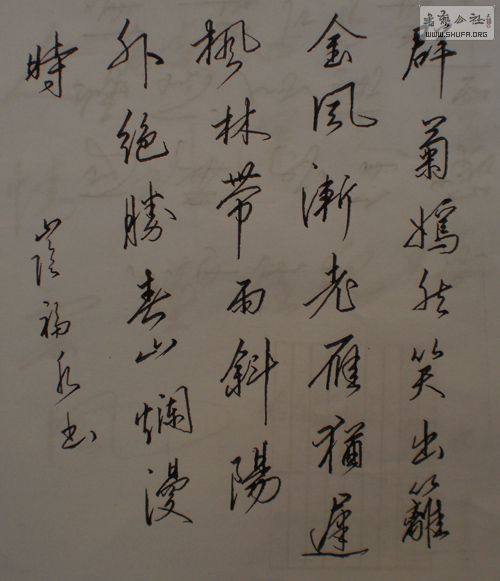 書藝公社
WWW.SHUFA.ORG
群菊嫣然笑出籬
金風漸老雁猶遲
楓林帶雨斜陽
外絕勝春山爛漫
時
福书